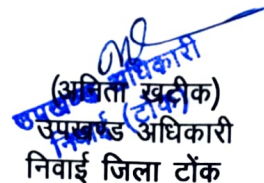 (अनिता खटीक)
उपखण्ड अधिकारी
निवाई जिला टोंक
उपखण्ड अधिकारी
निवाई (टोंक)